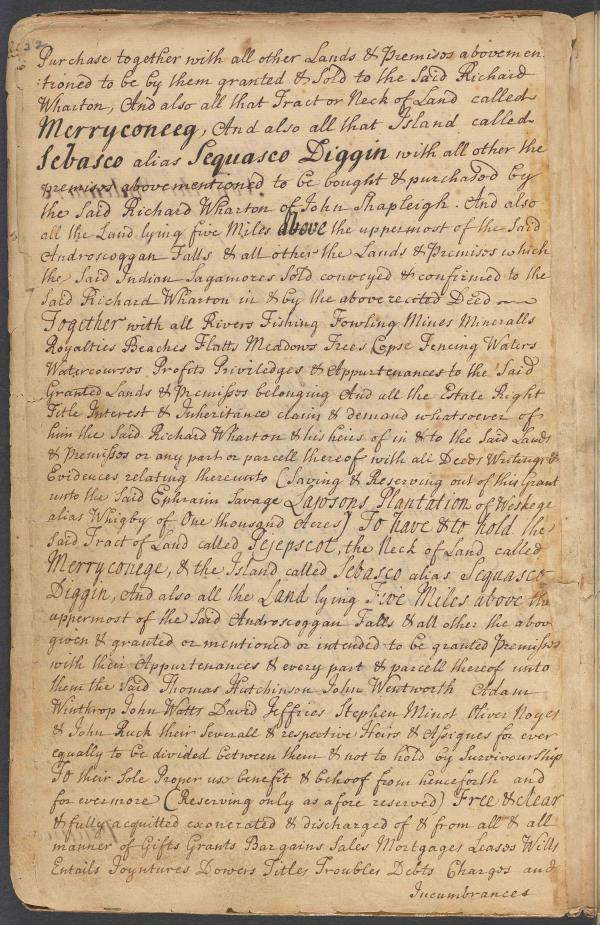 22
Purchase together with all other Lands & Premises abovemen
:tioned to be by them granted & Sold to the Said Richard
Wharton, And also all that Tract or Neck of Land called
Merryconeeg, And also all that Island called
Sebasco alias Sequasco Diggin with all other the
premises abovementioned to be bought & purchased by
the Said Richard Wharton of John Shapleigh. And also
all the Land lying five Miles above the uppermost of the Said
Androscoggan Falls & all other the Lands & Premises which
the Said Indian Sagamores Sold conveyed & confirmed to the
Said Richard Wharton in & by the above recited Deed
Together with all Rivers Fishing Fowling Mines Mineralls
Royalties Beaches Flatts Meadows Trees Copse Fencing Waters
Watercourses Profits Priviledges & Appurtenances to the Said
Granted Lands & Premisses belonging And all the Estate Right
Title Interest & Inheritance claim & demand whatsoever of
him the Said Richard Wharton & his heirs of in & to the Said Lands
& Premisses or any part or parcell thereof with all Deeds Writings &
Evidences relating thereunto (Saving & Reserving out of this Grant
unto the Said Ephraim Savage Lawsons Plantation of Weskege
alias Whigby of One thousand Acres) To have & to hold the
Said Tract of Land called Pejepscot, the Neck of Land called
Merryconege, & the Island called Sebasco alias Sequasco
Diggin, And also all the Land lying Five Miles above the
uppermost of the Said Androscoggan Falls & all other the abov
given & granted or mentioned or intended to be granted Premisses
with their Appurtenances & every part & parcell thereof unto
them the Said Thomas Hutchinson John Wentworth Adam
Winthrop John Watts David Jeffries Stephen Minot Oliver Noyes
& John Ruck their Severall & respective Heirs & Assignes for ever
equally to be divided between them & not to hold by Survivourship
To their Sole Proper use benefit & behoof from henceforth and
for evermore (Reserving only as afore reserved) Free & clear
& fully acquitted exonerated & discharged of & from all & all
manner of Gifts Grants Bargains Sales Mortgages Leases Wills
Entails Joyntures Dowers Titles Troubles Debts Charges and
Incumbrances